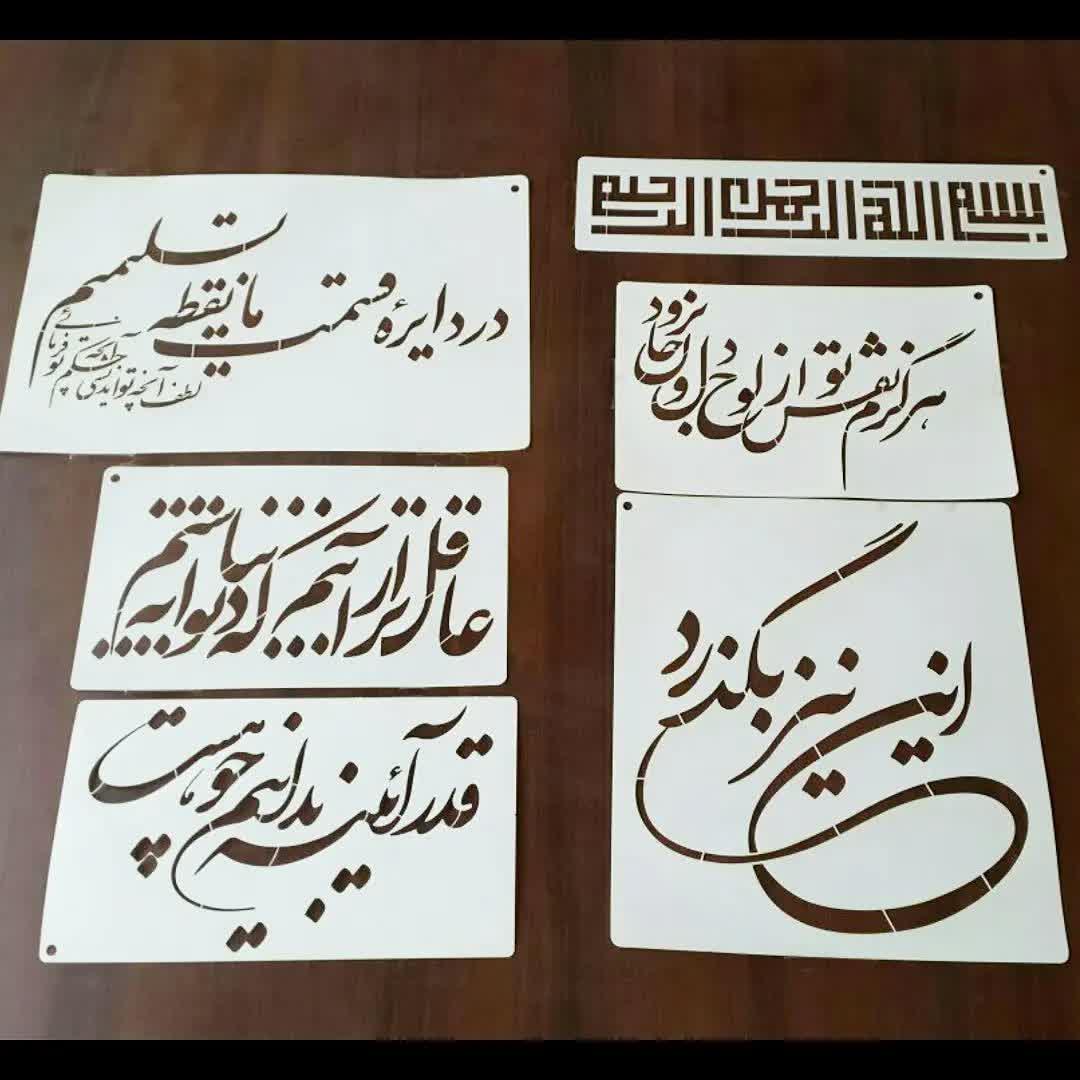 بسم الله الرحمن الرحیم
در دایرهٔ قسمت ما نقطه تسلیمیم
لطف آنچه تو اندیشی حکم آنچه تو فرمائی
هرگزم نقش تو از لوح دل و جان نرود
عاقل تر از آنیم که دیوانه نباشیم
این نیز بگذرد
قدر آئینه بدانیم چو هست